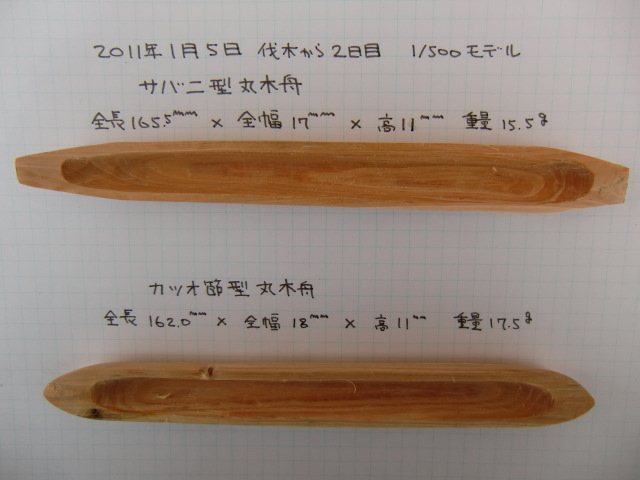 2011年1月5日 伐木から2日目 1/500モデル
サバニ型丸木舟
全長165.5mm × 全幅17mm × 高11mm 重量15.5g
カツオ節型丸木舟
全長162.0mm × 全幅18mm × 高11mm 重量17.5g